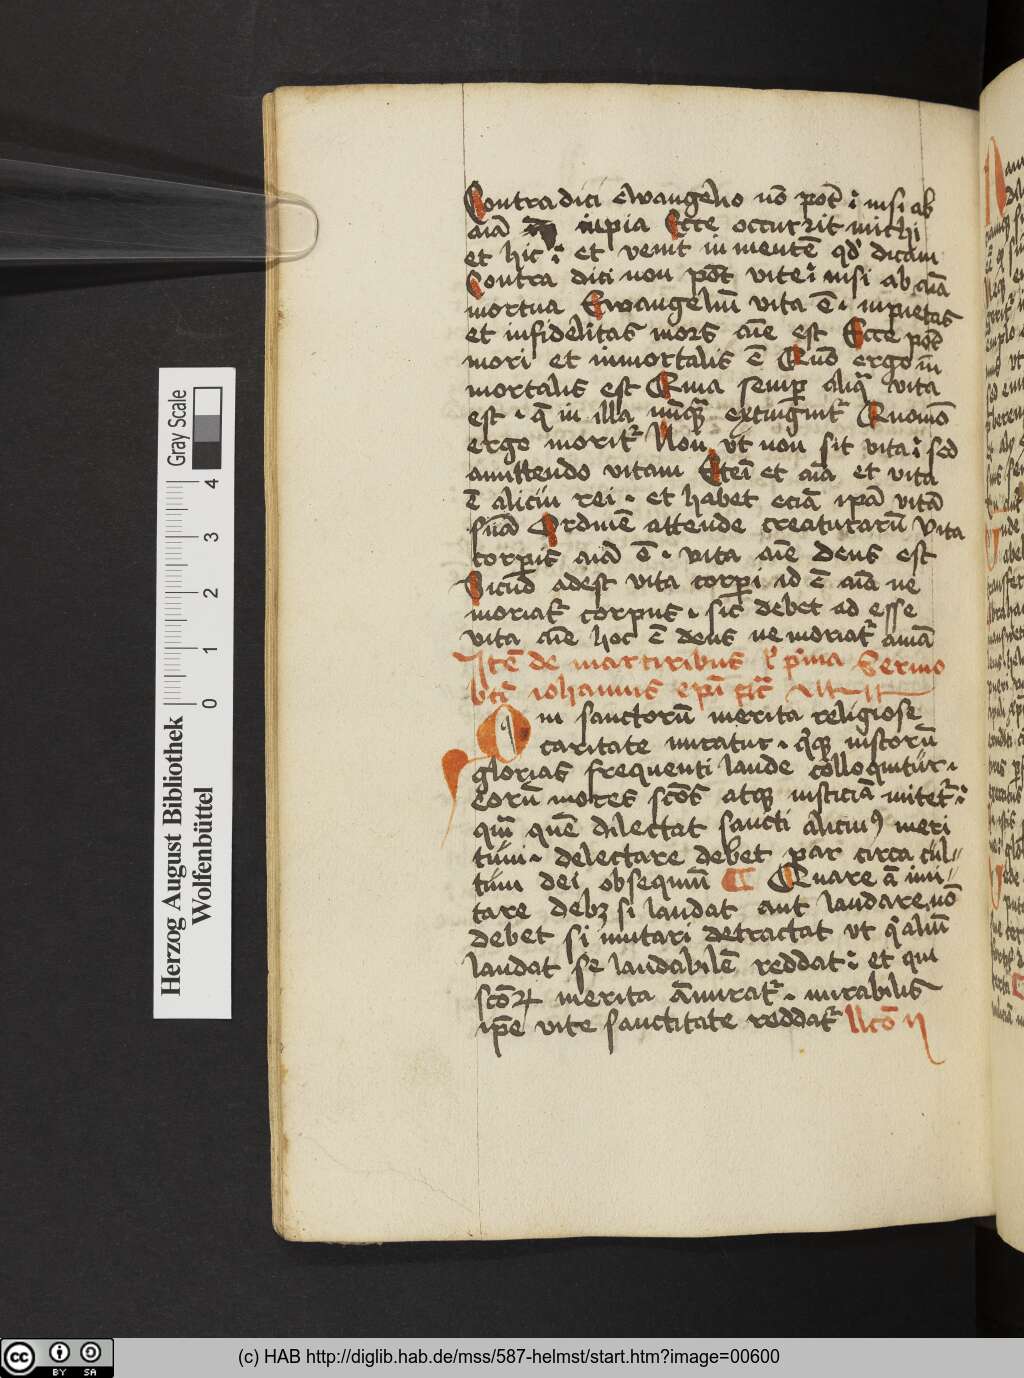 Contradici ewangelio nō pot̄ ⁊ nisi ab
aīa inpia Ecce occurrit michi
et hic ⁊ et venit in mentē qđ dicam
Contra dici non pōt vite ⁊ nisi ab aīa
mortua Ewangeliū vita ē · inpietas
et infidelitas mors aīe est Ecce pōt
mori et inmortalis ē Quō ergo in
mortalis est Quia semp aliq̄ vita
est · q̄ in illa nūq̄ extingwit᷑ Quomō
ergo morit᷑ Non vt non sit vita ⁊ sed
amittendo vitam Etei et aīa et vita
ē alicui rei · et habet eciā ipā vitā
suā Ordinē attende creaturarū vita
corpis aīa ē · vita aīe deus est
Sicud adest vita corpi id ē aīa ne
moriat᷑ corpus · sic debet ad esse
vita aīe hoc ē deus ne moriat᷑ aīma
Itē de martiribus pma Sermo
bti iohannis epī
Qui sanctorū merita religiose
caritate miratur · qq̄ iustorū
glorias frequenti laude colloquitur ·
Eorū mores scōs atq̄ iusticiā mitet᷑ ·
qm̄ quē dilectat sancti alicui⁹ meri
tum · delectare debet par circa cul=
tum dei obsequiū Quare ā imi=
tare debꝫ si laudat aut laudare nō
debet si imitari detractat vt q̄ aliū
laudat se laudabilē reddat ⁊ et qui
scōꝝ merita āmirat᷑ · mirabilis
ipē vite sanctitate reddat᷑ llcō ii
Herzog August Bibliothek
Wolfenbüttel
Gray Scale
0 1 2 3 4
cc BY SA
(c) HAB http://diglib.hab.de/mss/587-helmst/start.htm?image=00600